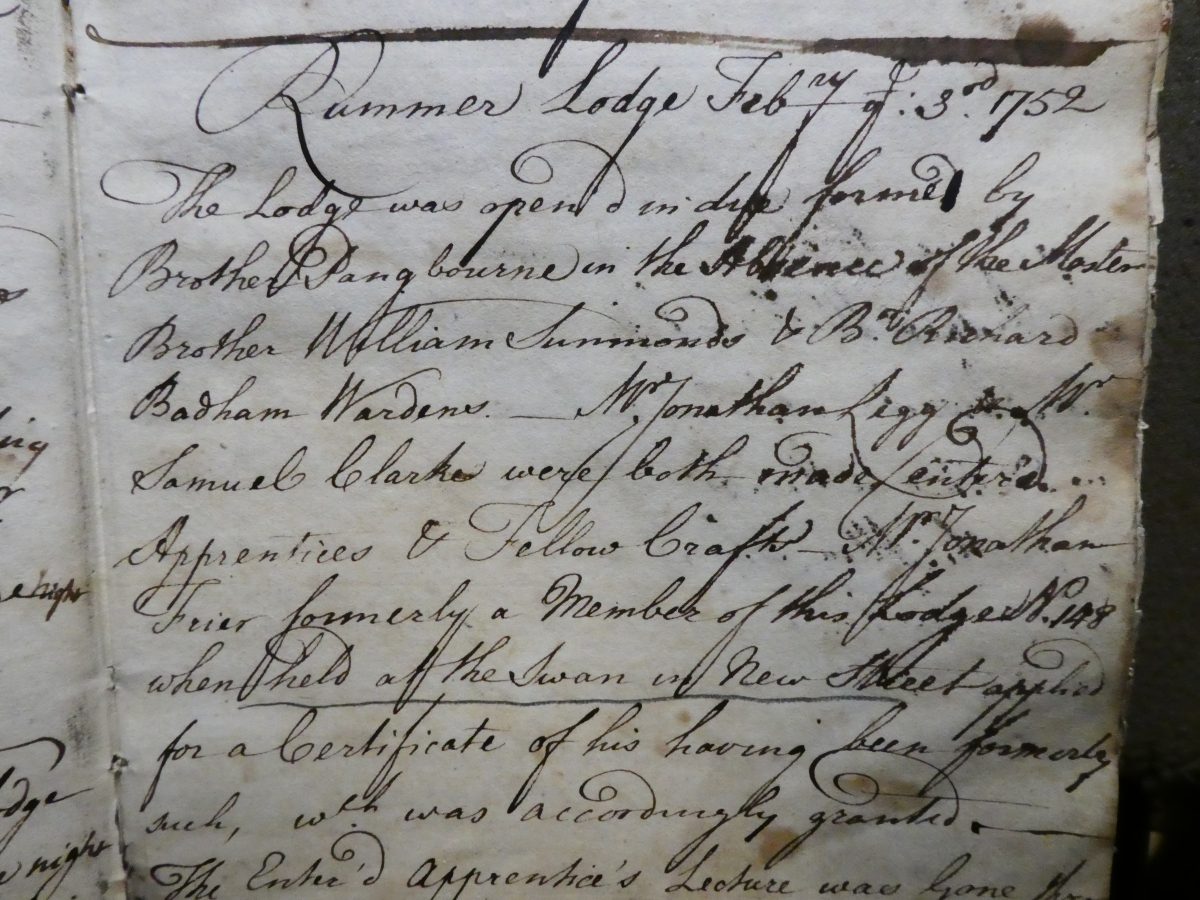 Rummer Lodge Feb:ry ye: 3rd. 1752
The Lodge was open'd in due forme by
Brother Pangbourne in the Absence of the Master
Brother William Summonds & Br. Richard
Badham Wardens. — Mr. Jonathan Ligg & Mr.
Samuel Clarke were both made enter'd
Apprentices & Fellow Crafts — Mr. Jonathan
Frier formerly a Member of this Lodge No. 148
when held at the Swan in New Street applied
for a Certificate of his having been formerly
such, wch was accordingly granted. —
The Enter'd Apprentice's Lecture was Gone
ing
night
odge
night